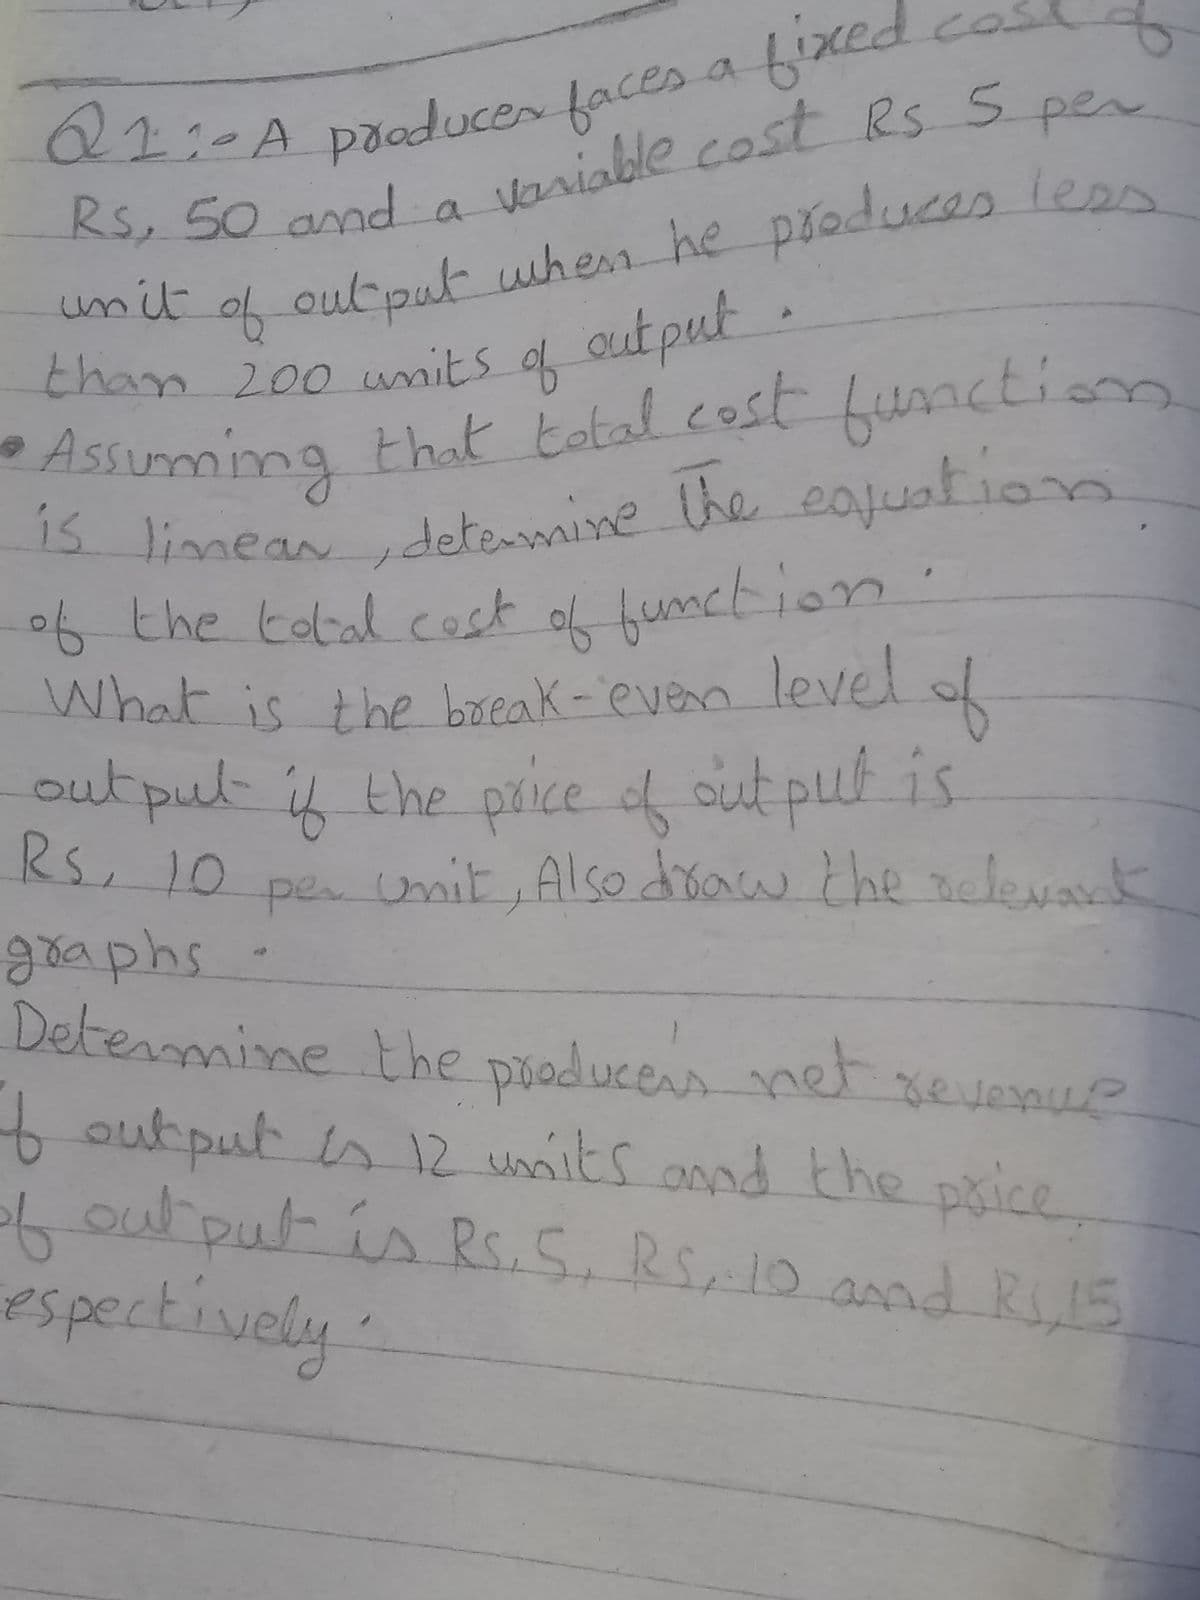 Q1:- A producer faces a fixed cost of
Rs, 50 and a variable cost Rs 5 per
unit of output when he produces less
than 200 units of output.
• Assuming that total cost function
is linear, determine The equation
of the total cost of function.
What is the break-even level of
output if the price of output is
Rs, 10 per Unit, Also draw the relevant
graphs.
Determine the producer's net revenue
if output is 12 units and the price
of output is Rs, 5, Rs, 10 and Rs, 15
espectively.